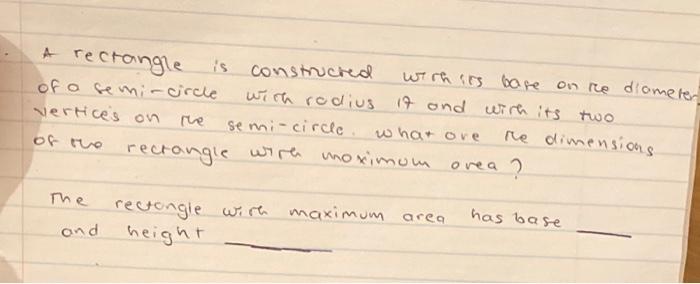 A rectangle is constructed with its base on the diameter
of a semi-circle with radius 17 and with its two
vertices on the semi-circle. What are the dimensions
of the rectangle with maximum area?
The rectangle with maximum area has base ____
and height ____